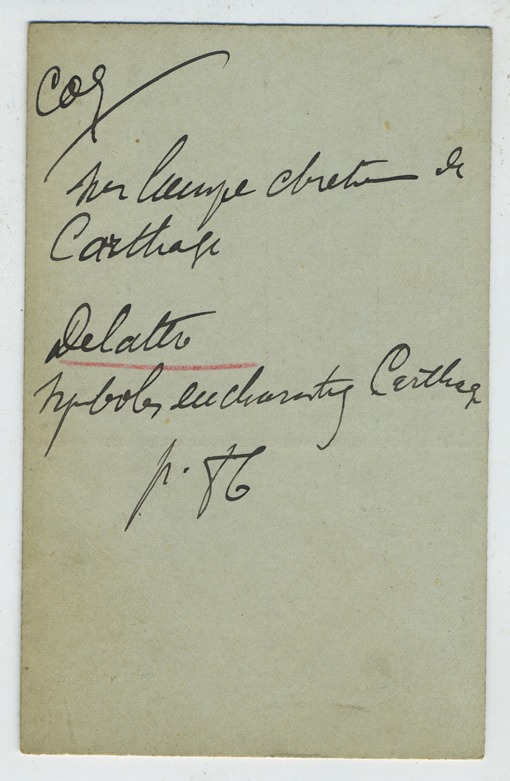 Coq
sur lampe chretienne de
Carthage
Delattre
symboles eucharistiq Carthage
p. 86